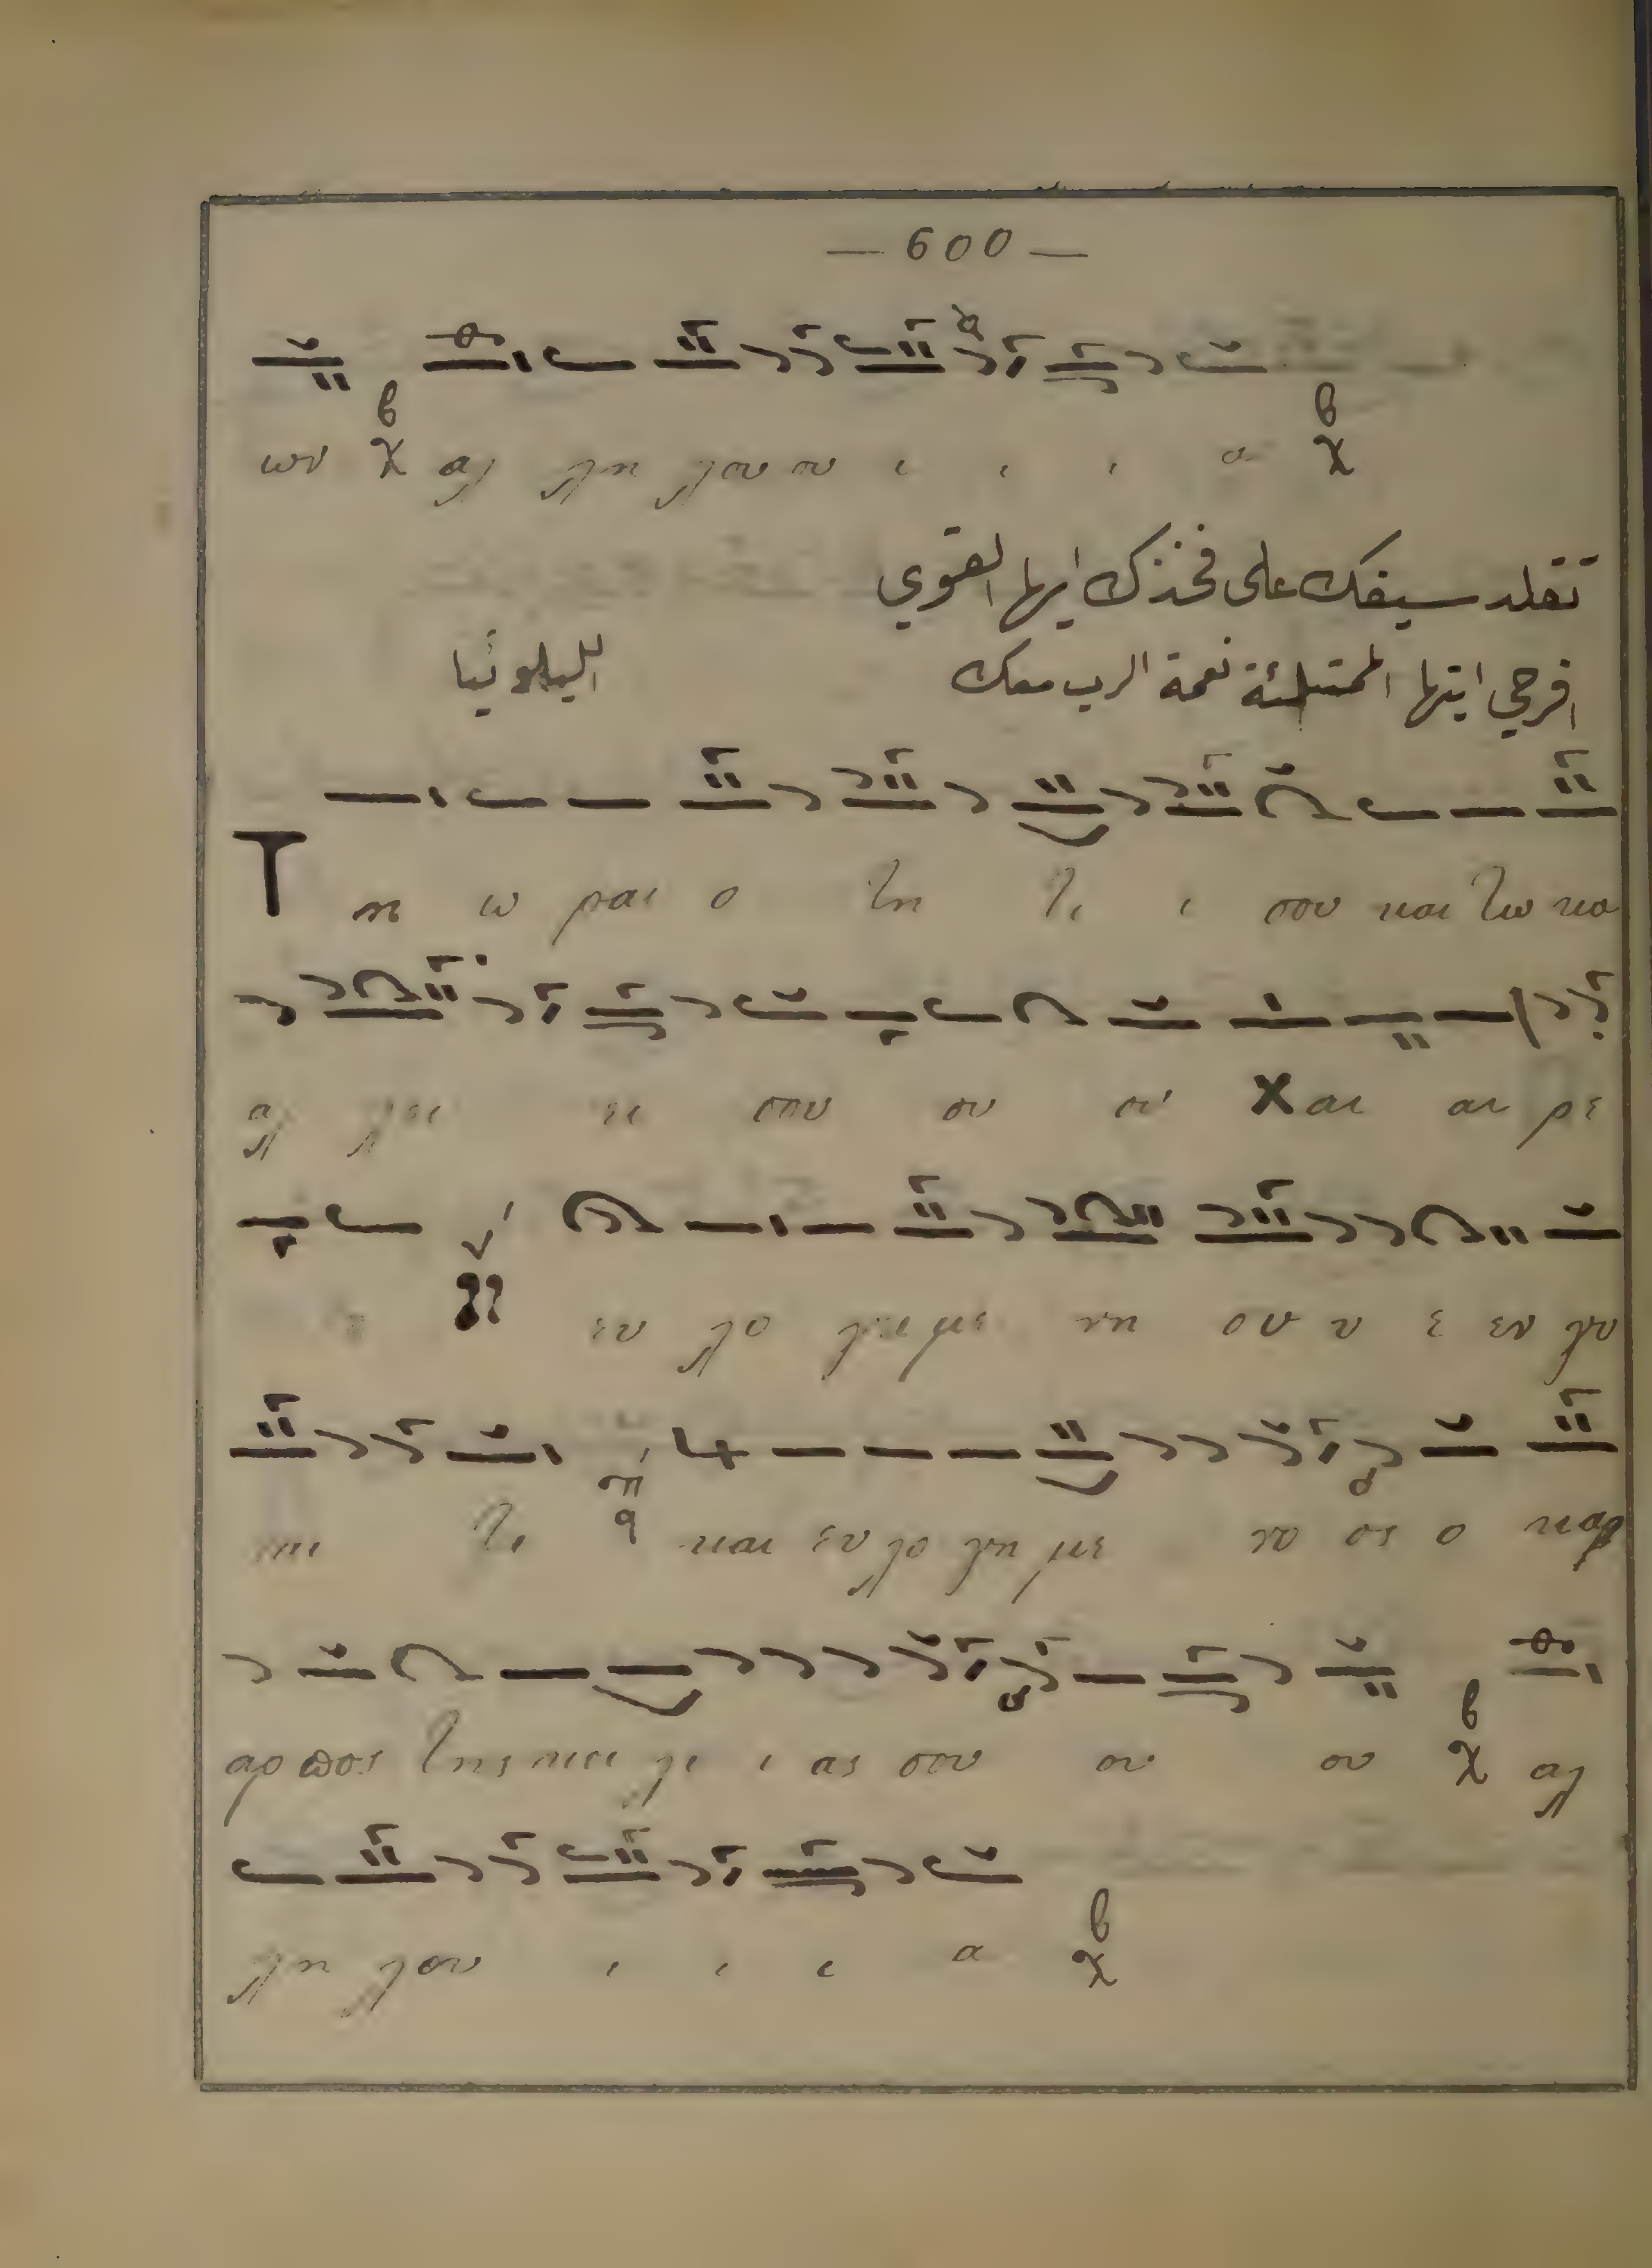 — 600 —
ων αλ λη λου ου ι ι ι α
تقلد سيفك على فخذك ايها القوي
افرحي ايتها الممتلئة نعمة الرب معك الليلوئيا
Τ η ω ραι ο τη τι ι σου και τω κα
αλ λει ει σου ου ου Χαι αι ρε
ευ λο γημε νη ου υ ε εν γυ
ναι ξι και ευλο γη με νο ος ο καρ
αρ πος της κοι λι ι ας σου ου ου αλ
λη λου ι ι ι α